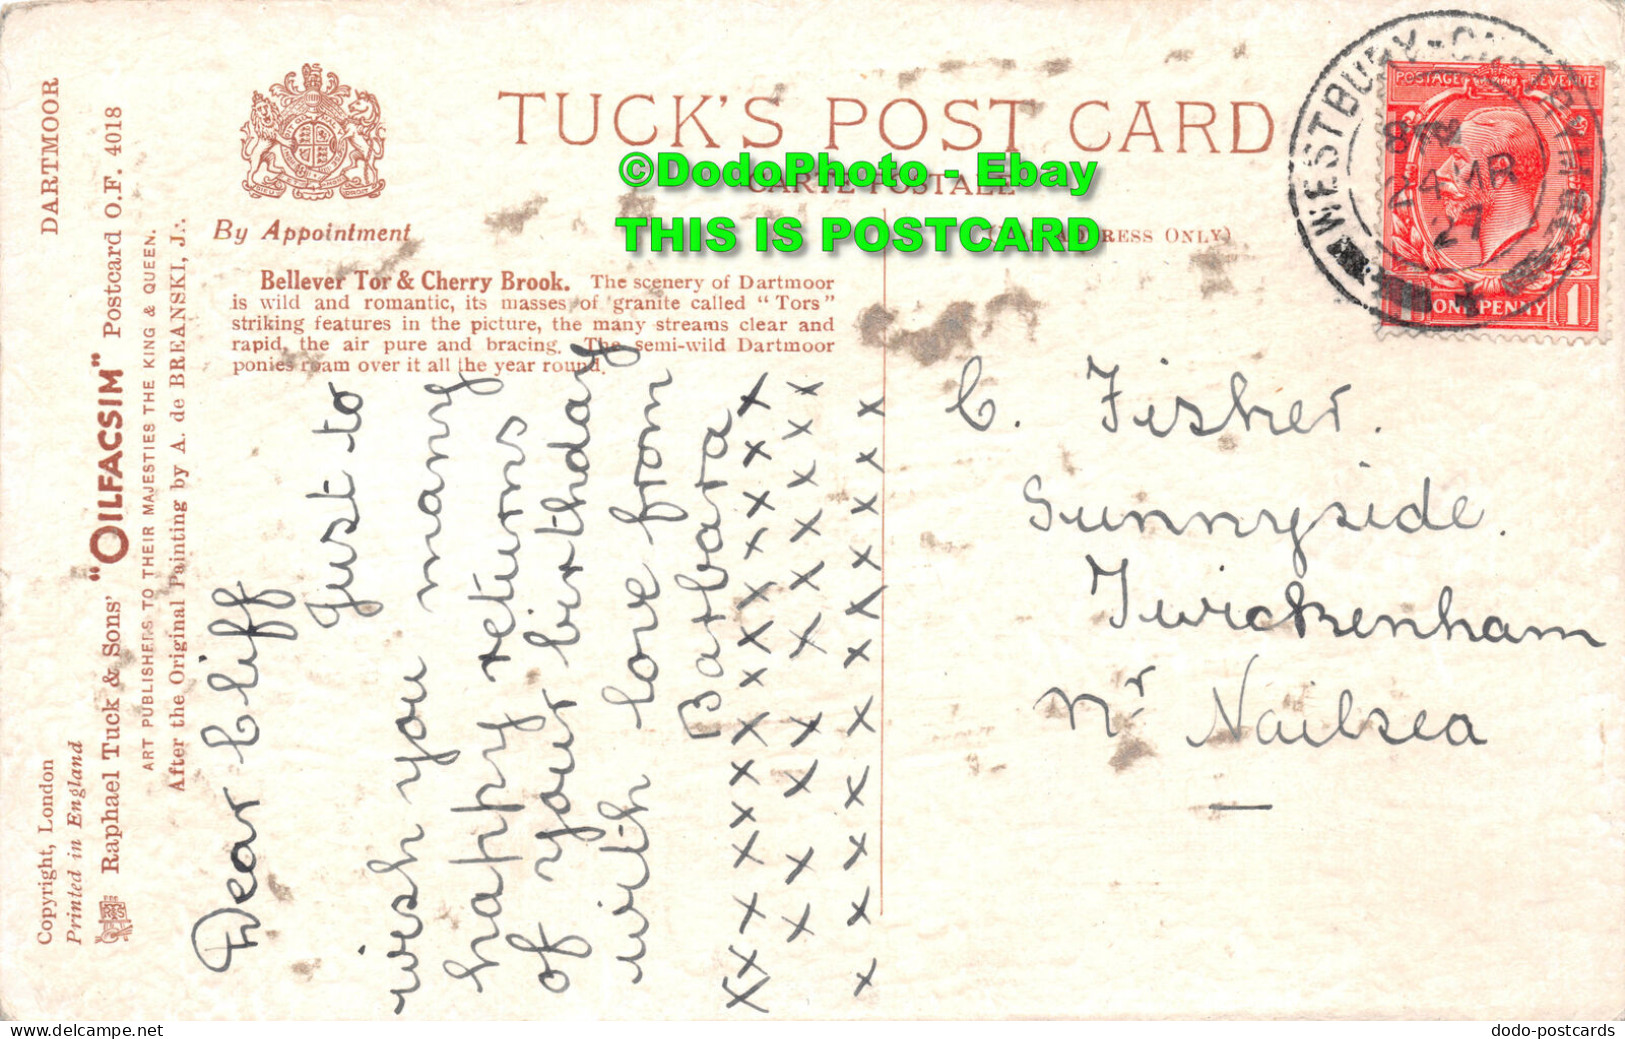 DARTMOOR
Copyright, London
Printed in England
Raphael Tuck & Sons' "OILFACSIM" Postcard O.F. 4018
ART PUBLISHERS TO THEIR MAJESTIES THE KING & QUEEN.
After the Original Painting by A. de BREANSKI, J.
By Appointment
TUCK'S POST CARD
CARTE POSTALE
©DodoPhoto - Ebay
THIS IS POSTCARD
ADDRESS ONLY)
Bellever Tor & Cherry Brook. The scenery of Dartmoor
is wild and romantic, its masses of granite called "Tors"
striking features in the picture, the many streams clear and
rapid, the air pure and bracing. The semi-wild Dartmoor
ponies roam over it all the year round.
Dear Cliff
Just to
wish you many
happy returns
of your birthday
with love from
Barbara
WESTBURY-ON-TRYM
8 PM
24 MR
27
POSTAGE REVENUE
1 ONE PENNY 1
C. Fisher.
Sunnyside.
Twickenham
Nr Nailsea
delcampe.net
dodo-postcards